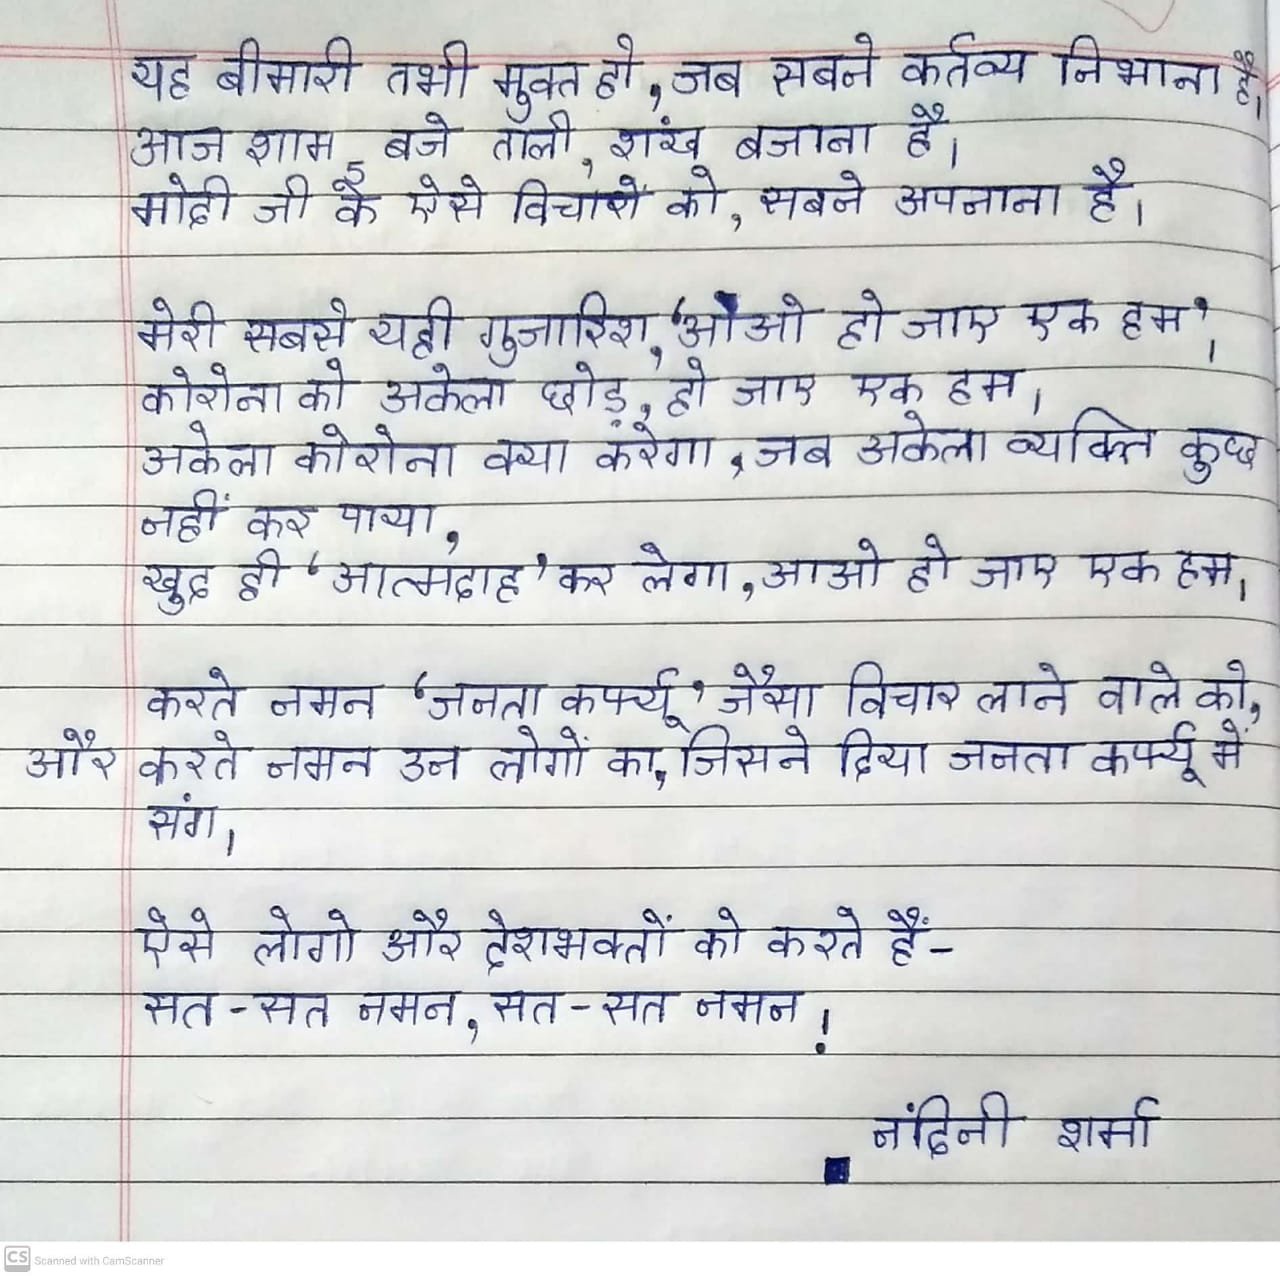 यह बीमारी तभी मुक्त हो, जब सबने कर्तव्य निभाना है।
आज शाम 5 बजे ताली, शंख बजाना है।
मोदी जी के ऐसे विचारों को, सबने अपनाना है।
मेरी सबसे यही गुजारिश, 'आओ हो जाए एक हम'।
कोरोना को अकेला छोड़, हो जाए एक हम।
अकेला कोरोना क्या करेगा, जब अकेला व्यक्ति कुछ
नहीं कर पाया,
खुद ही 'आत्मदाह' कर लेगा, आओ हो जाए एक हम।
करते नमन 'जनता कर्फ्यू' जैसा विचार लाने वाले को,
और करते नमन उन लोगों का, जिसने दिया जनता कर्फ्यू में
संग।
ऐसे लोगो और देशभक्तों को करते हैं-
सत-सत नमन, सत-सत नमन!
नंदिनी शर्मा
CS Scanned with CamScanner